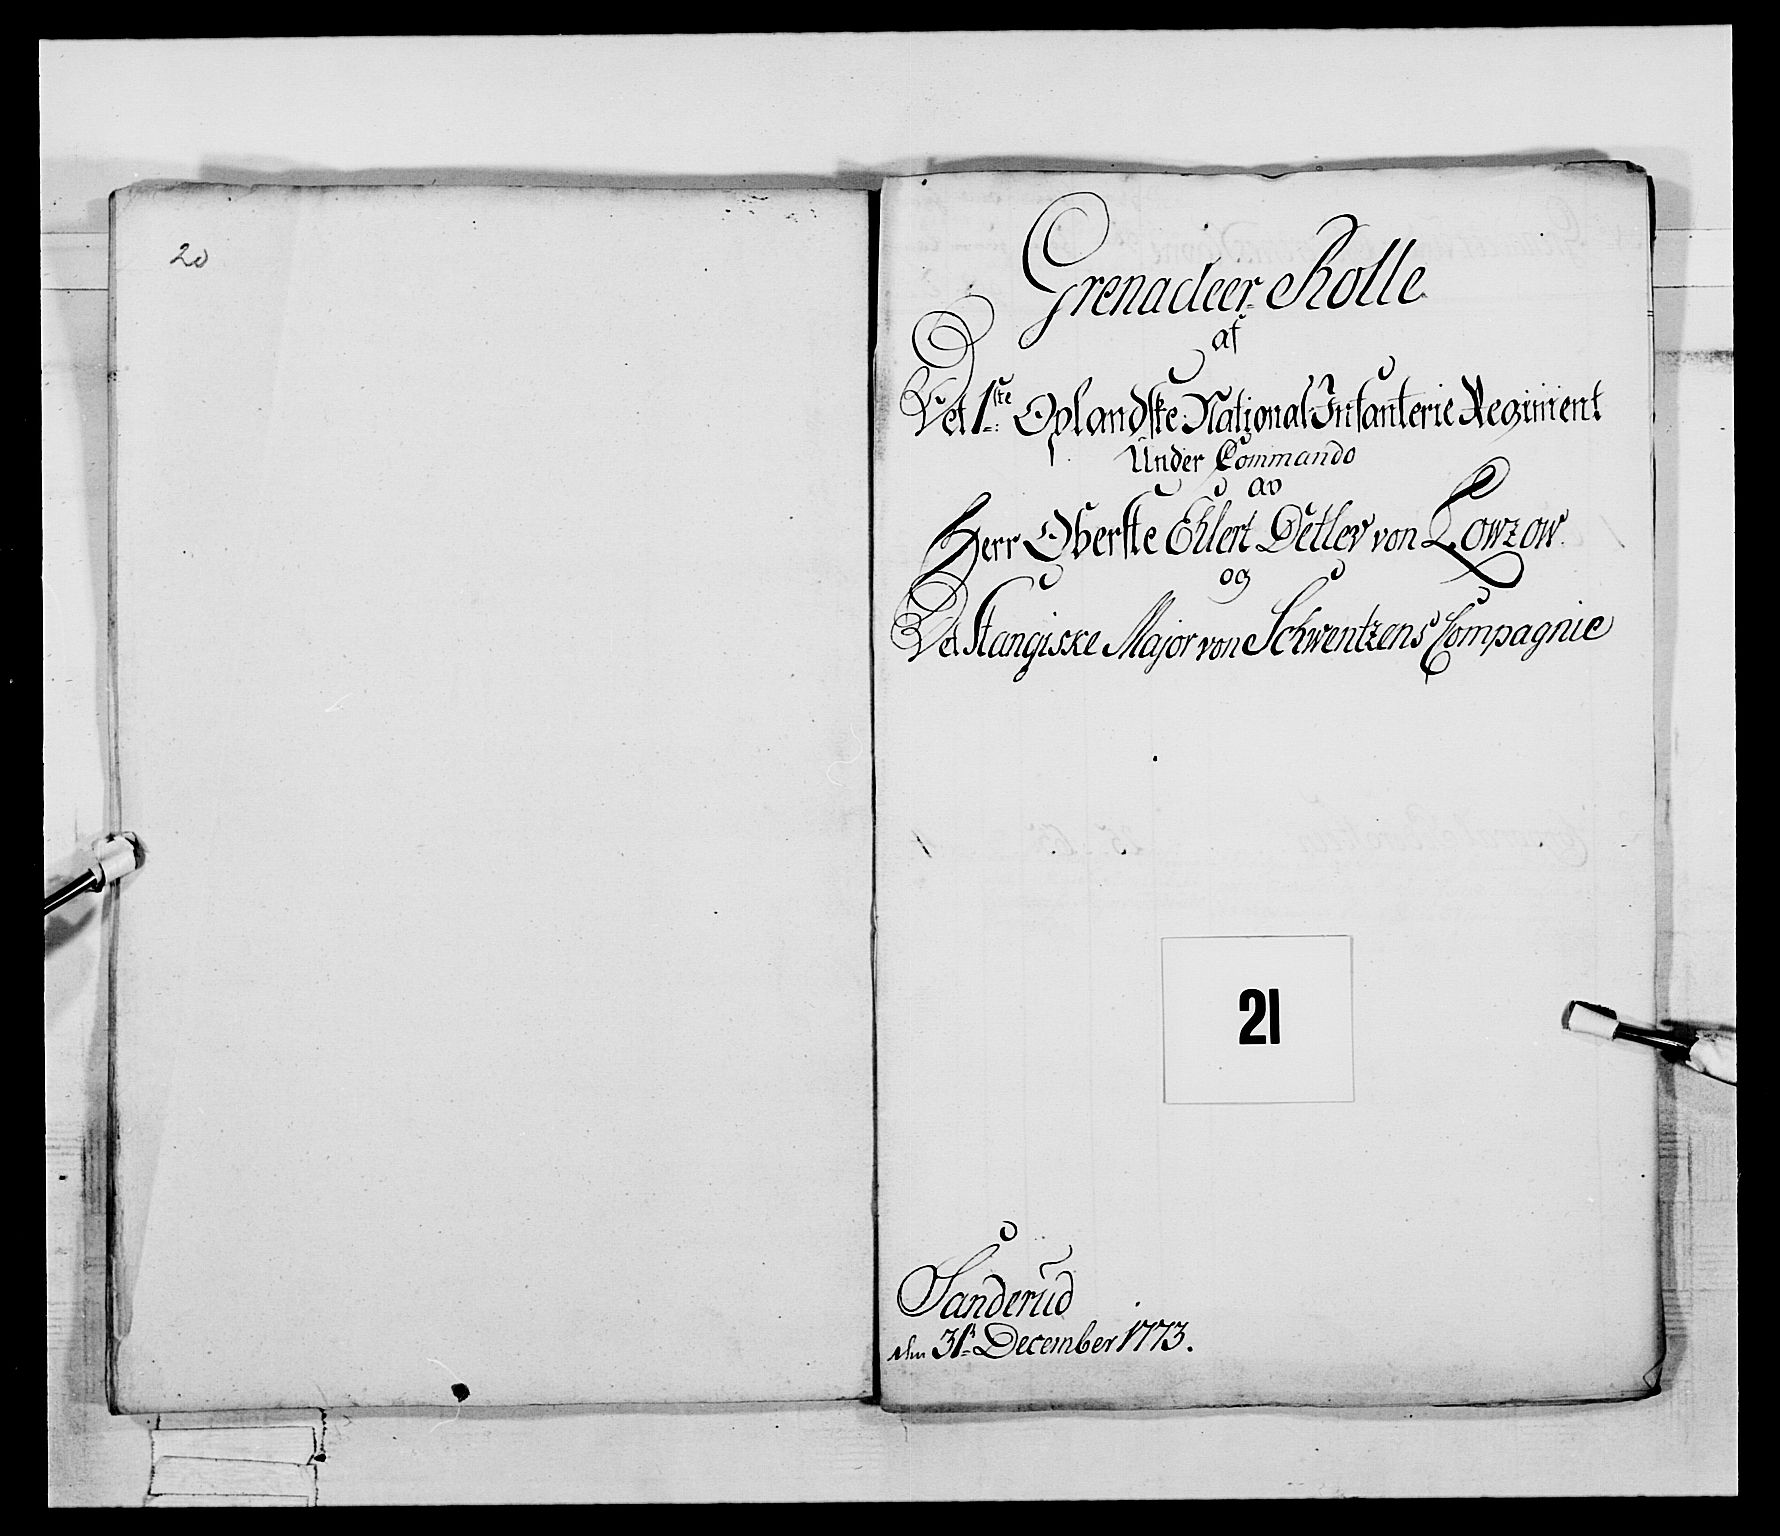 20
Grenadeer Rolle
af
Det 1ste Oplandske National Infanterie Regiment
Under Commando
av
Herr Oberste Ehlert Detlev von Lowzow
og
Det Stangiske Major von Schwentzens Compagnie
21
Sanderud
den 31t December 1773.